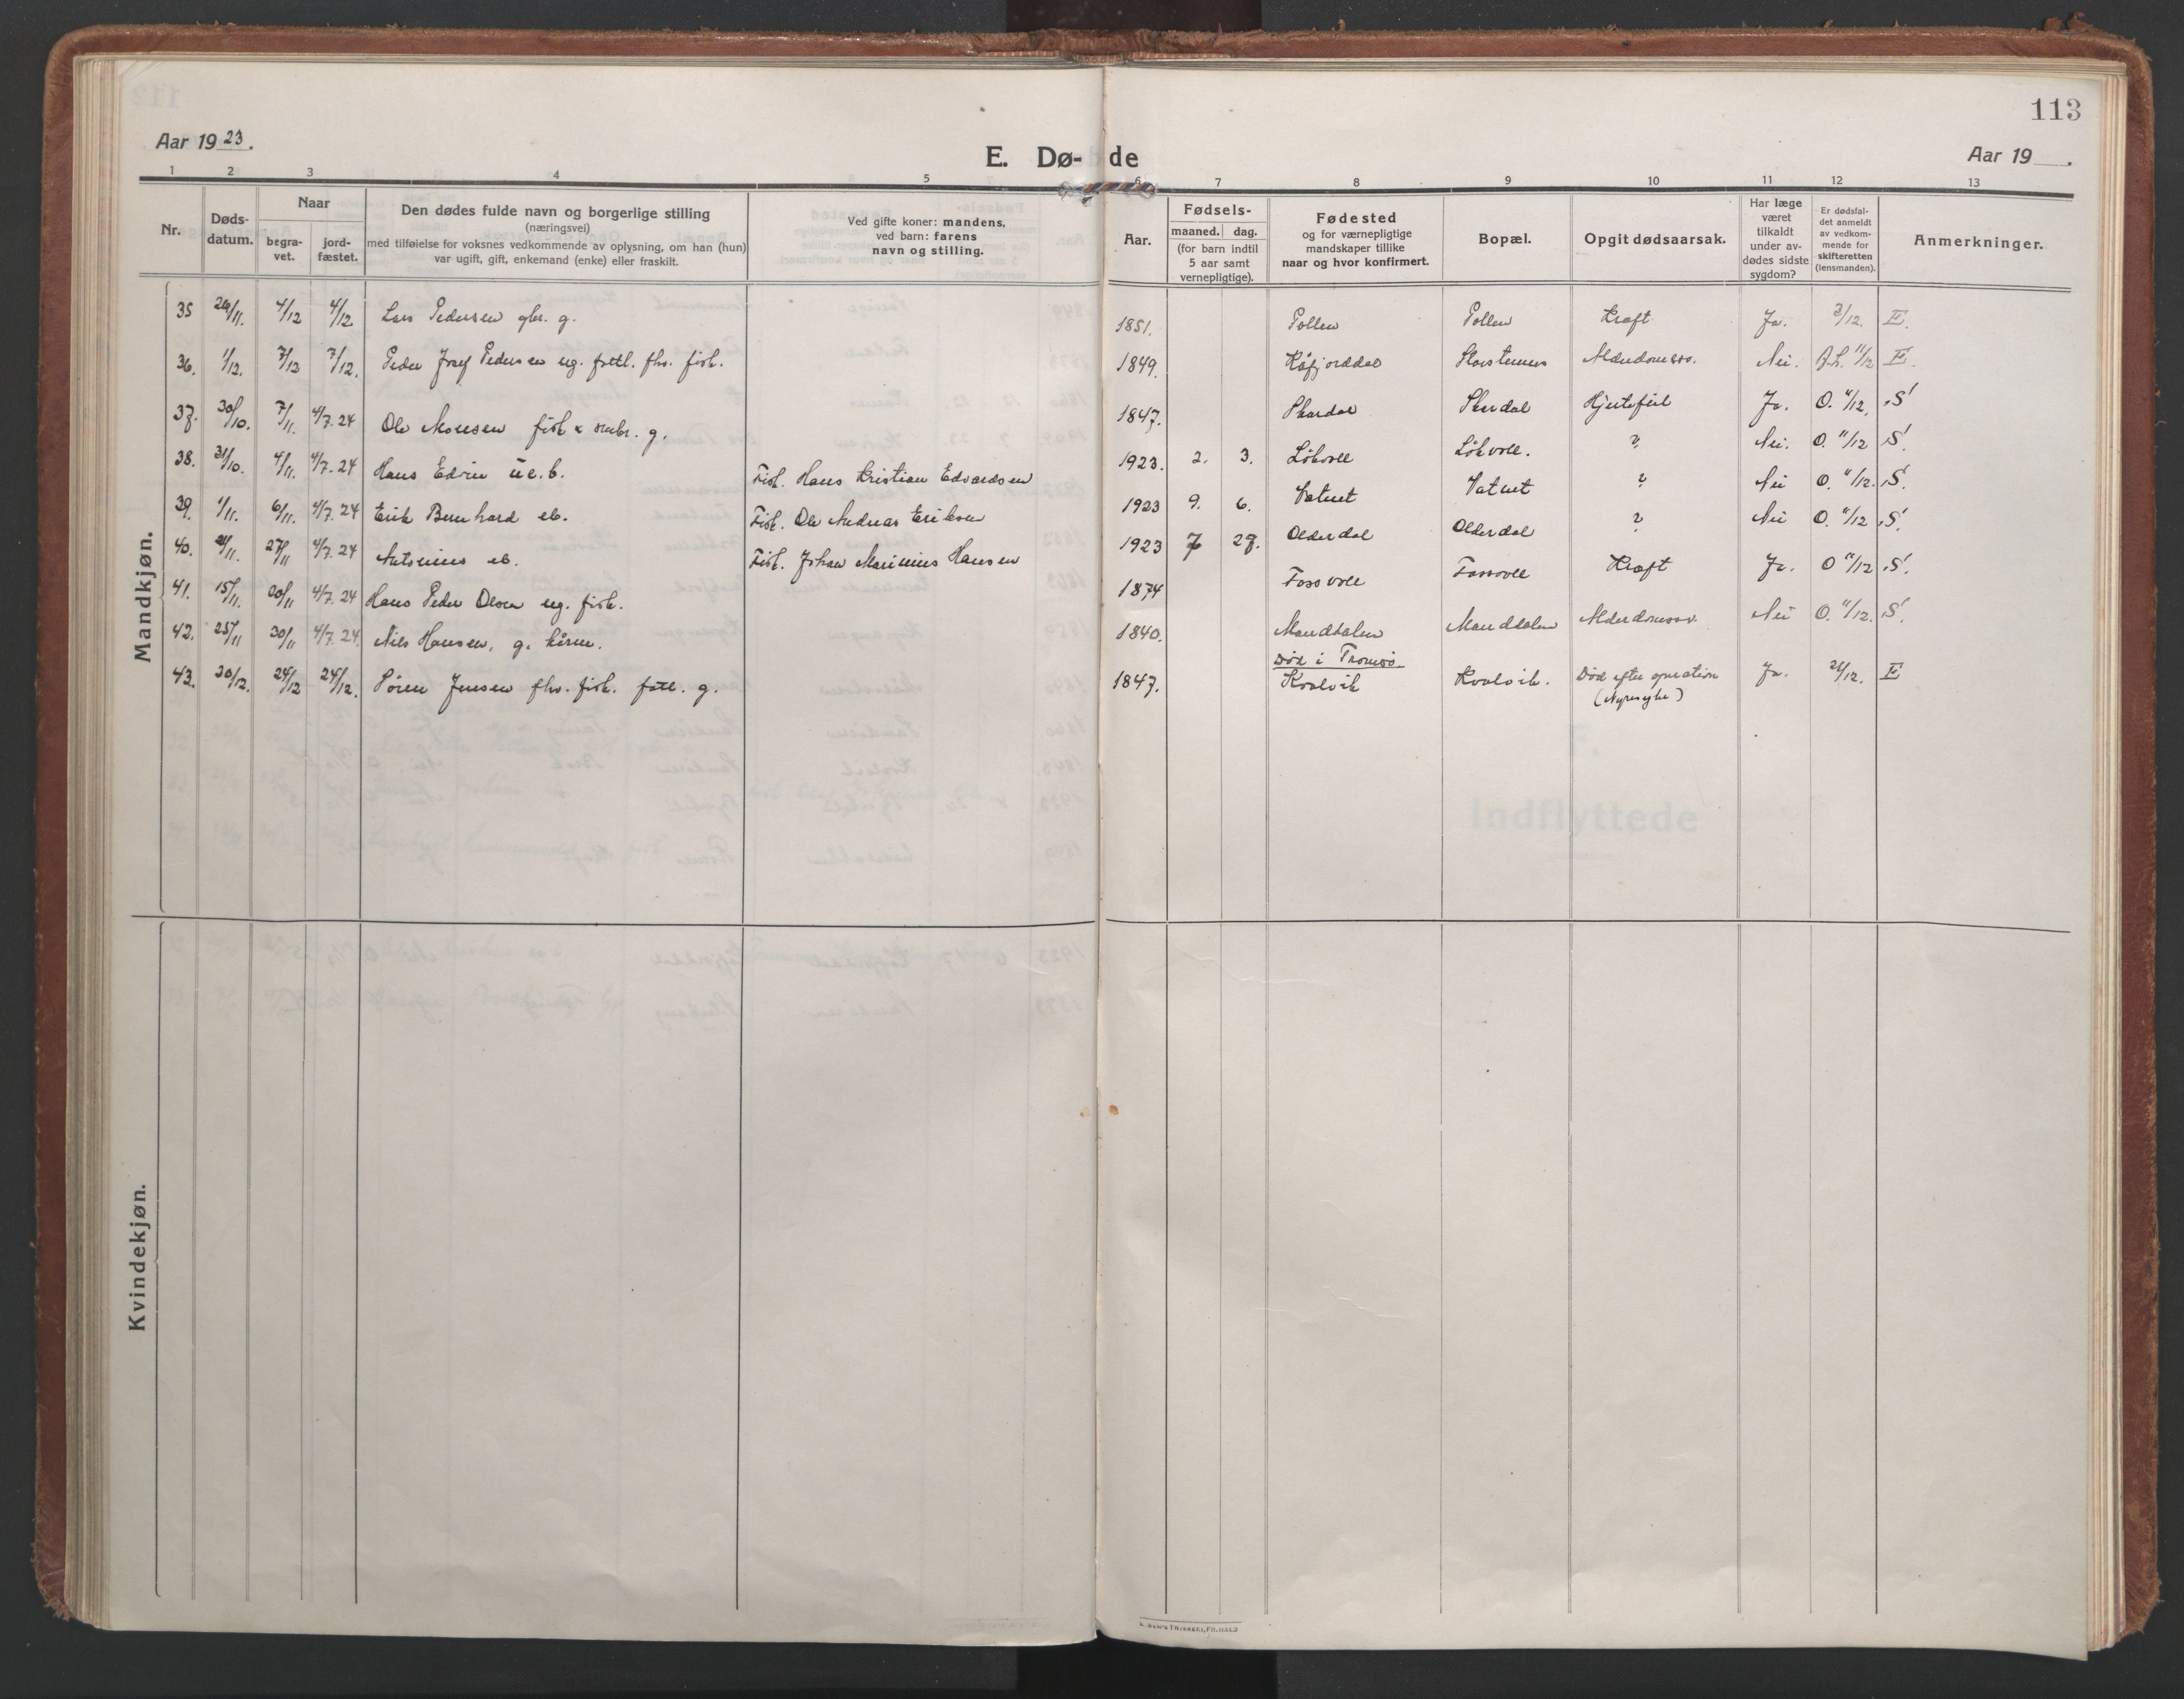 113
Aar 1923.
E. Dø- de
Aar 19 .
1 2 3 4 5 6 7 8 9 10 11 12 13
Nr.
Døds-
datum.
Naar
begra-
vet.
jord-
fæstet.
Den dødes fulde navn og borgerlige stilling
(næringsvei)
med tilføielse for voksnes vedkommende av oplysning, om han (hun)
var ugift, gift, enkemand (enke) eller fraskilt.
Ved gifte koner: mandens,
ved barn: farens
navn og stilling.
Aar.
Fødsels-
maaned. dag.
(for barn indtil
5 aar samt
vernepligtige).
Fødested
og for værnepligtige
mandskaper tillike
naar og hvor konfirmert.
Bopæl.
Opgit dødsaarsak.
Har læge
været
tilkaldt
under av-
dødes sidste
sygdom?
Er dødsfal-
det anmeldt
av vedkom-
mende for
skifteretten
(lensmanden).
Anmerkninger.
Mandkjøn.
35 4/12 4/12 Lars Pedersen gbr. g. 1851. Pollen Pollen Kræft Ja. 3/12. E.
36. 1/12. 7/12 7/12. Peder Josef Pedersen ug. fattl. fhv. fisk. 1849. Kåfjorddal Alderdomssv. Nei. 11/12 E.
37. 30/10. 7/11. 4/7.24 Ole Monsen fisk g. 1847. Skardal Skardal Hjertefeil Ja. O. 11/12. S!
38. 31/10. 4/11. 4/7.24 Hans Edvin u.e.b. Fisk. Hans Kristian Edvardsen 1923. 2. 3. Løkvoll Løkvoll. ? Nei. O. 11/12 S!
39. 1/11. 6/11. 4/7.24 Erik Bernhard eb. Fisk. Ole Andreas Eriksen 1923 9. 6. Vatnet Vatnet ? Nei O. 11/12. S!
40. 27/11 4/7.24 eb. Fisk. Johan Marinius Hansen 1923 7 27. Olderdal Olderdal ? Nei O. 11/12 S!
41. 15/11. 20/11 4/7.24 Hans Peder Olsen ug. fisk. 1874 Fossvoll Fossvoll Kræft Ja. O 11/12 S!
42. 25/11 30/11 4/7.24 Nils Hansen, g. kårm. 1840. Manddalen Manddalen Alderdomssv. Nei O. 11/12. S!
43. 20/12. 24/12 24/12. Sören Jensen fhv. fisk. fatt. g. 1847. Død i Tromsø.
Kvalvik Kvalvik. Død efter operation Ja. 24/12. E
(Nyresyke)
Kvindekjøn.